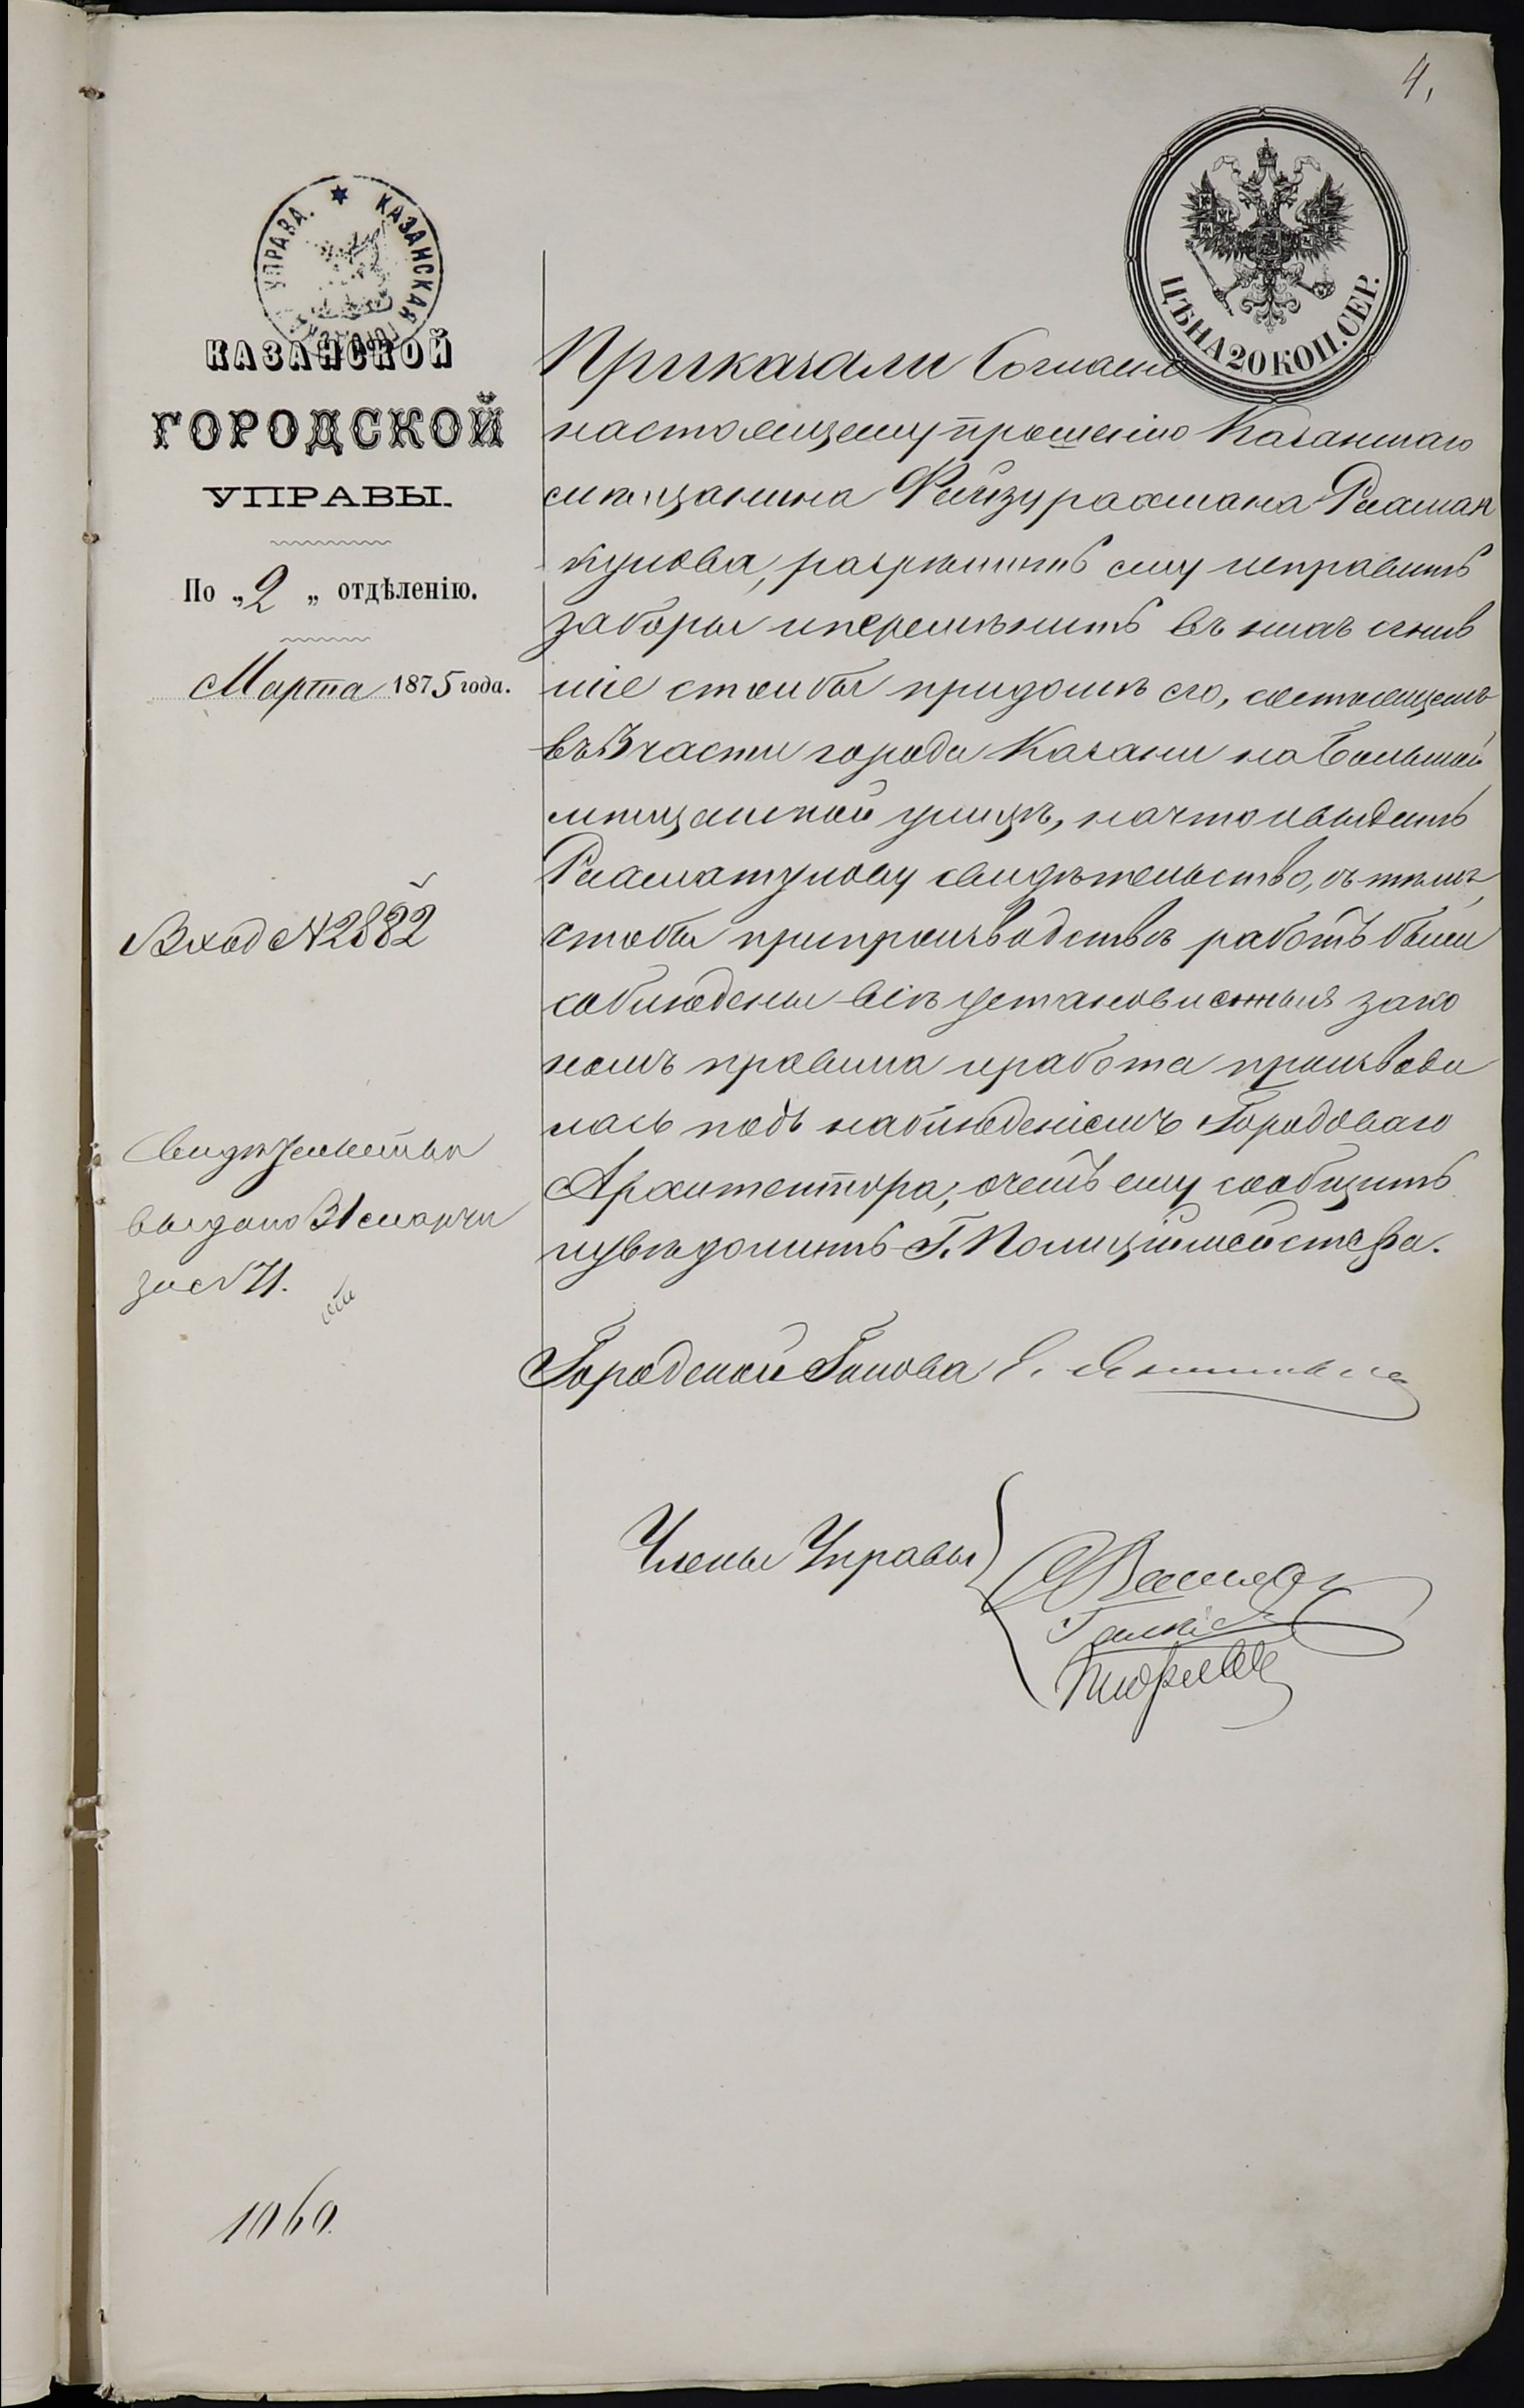 4,
УПРАВА. КАЗАНСКАЯ
ЦѢНА 20 КОП. СЕР.
КАЗАНСКОЙ
ГОРОДСКОЙ
УПРАВЫ.
По „2„ отдѣленію.
Марта 1875 года.
Вход №2882
Свидѣтельство
выдано 31 марта
за №71.
1060.
Приказали Согласно
настоящему прошенію Казанскаго
мѣщанина Файзурахмана
разрѣшить ему исправить
заборы и перемѣнить въ нихъ сгнив
шіе столбы при домѣ его, состоящемъ
въ 3 части города Казани на Большой
мѣщанской улицѣ, на что и выдать
свидѣтельство, съ тѣмъ,
чтобы при производствѣ работъ были
соблюдены всѣ установленныя зако
номъ правила и работа производи
лась подъ наблюденіемъ Городоваго
Архитектора, о чемъ ему сообщить
и увѣдомить Г. Полиціймейстера.
Городской Голова
Члены Управы